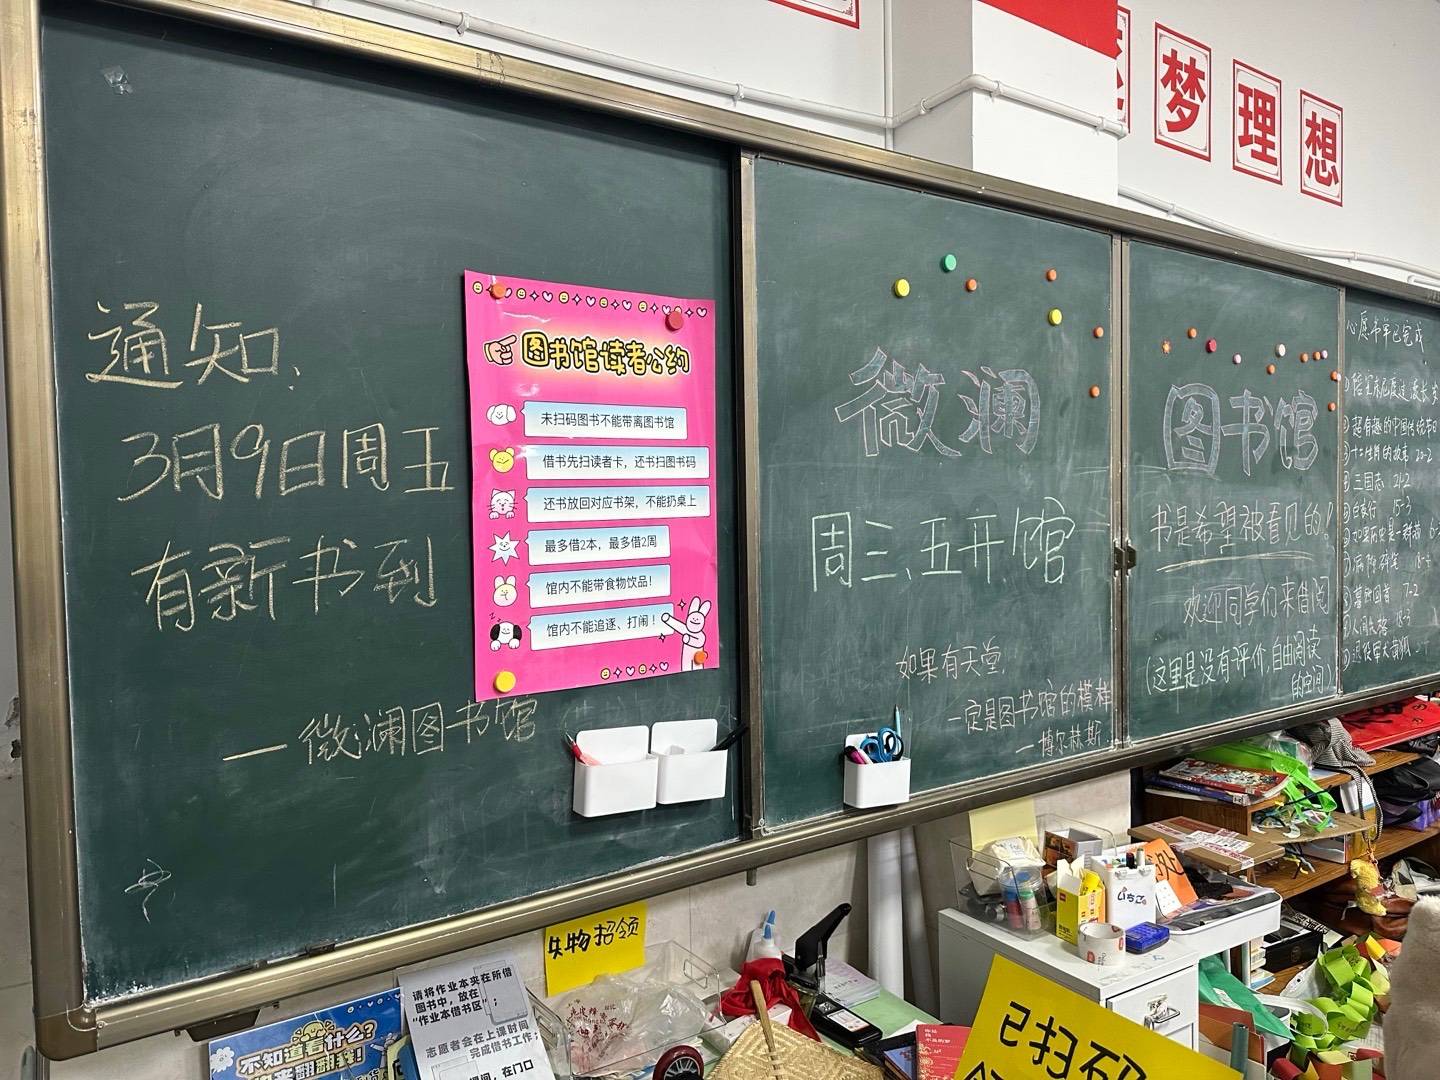 梦
理
想
通知:
3月9日周五
有新书到
— 微澜图书馆
图书馆读者公约
未扫码图书不能带离图书馆
借书先扫读者卡，还书扫图书码
还书放回对应书架，不能扔桌上
最多借2本，最多借2周
馆内不能带食物饮品！
馆内不能追逐、打闹！
微澜
周三、五开馆
如果有天堂,
一定是图书馆的模样
—博尔赫斯
图书馆
书是希望被看见的!
欢迎同学们来借阅
(这里是没有评价,自由阅读
的空间)
心愿书单已完成
超有趣的中国传统节日
十二生肖的故事 20-2
三国志 21-2
15-3
如果历史是一群喵
7-2
人间失格 18-3
失物招领
请将作业本夹在所借
图书中，放在
“作业本借书区”；
志愿者会在上课时间
完成借书工作；
在门口
不知道看什么?
来翻翻我!
已扫码